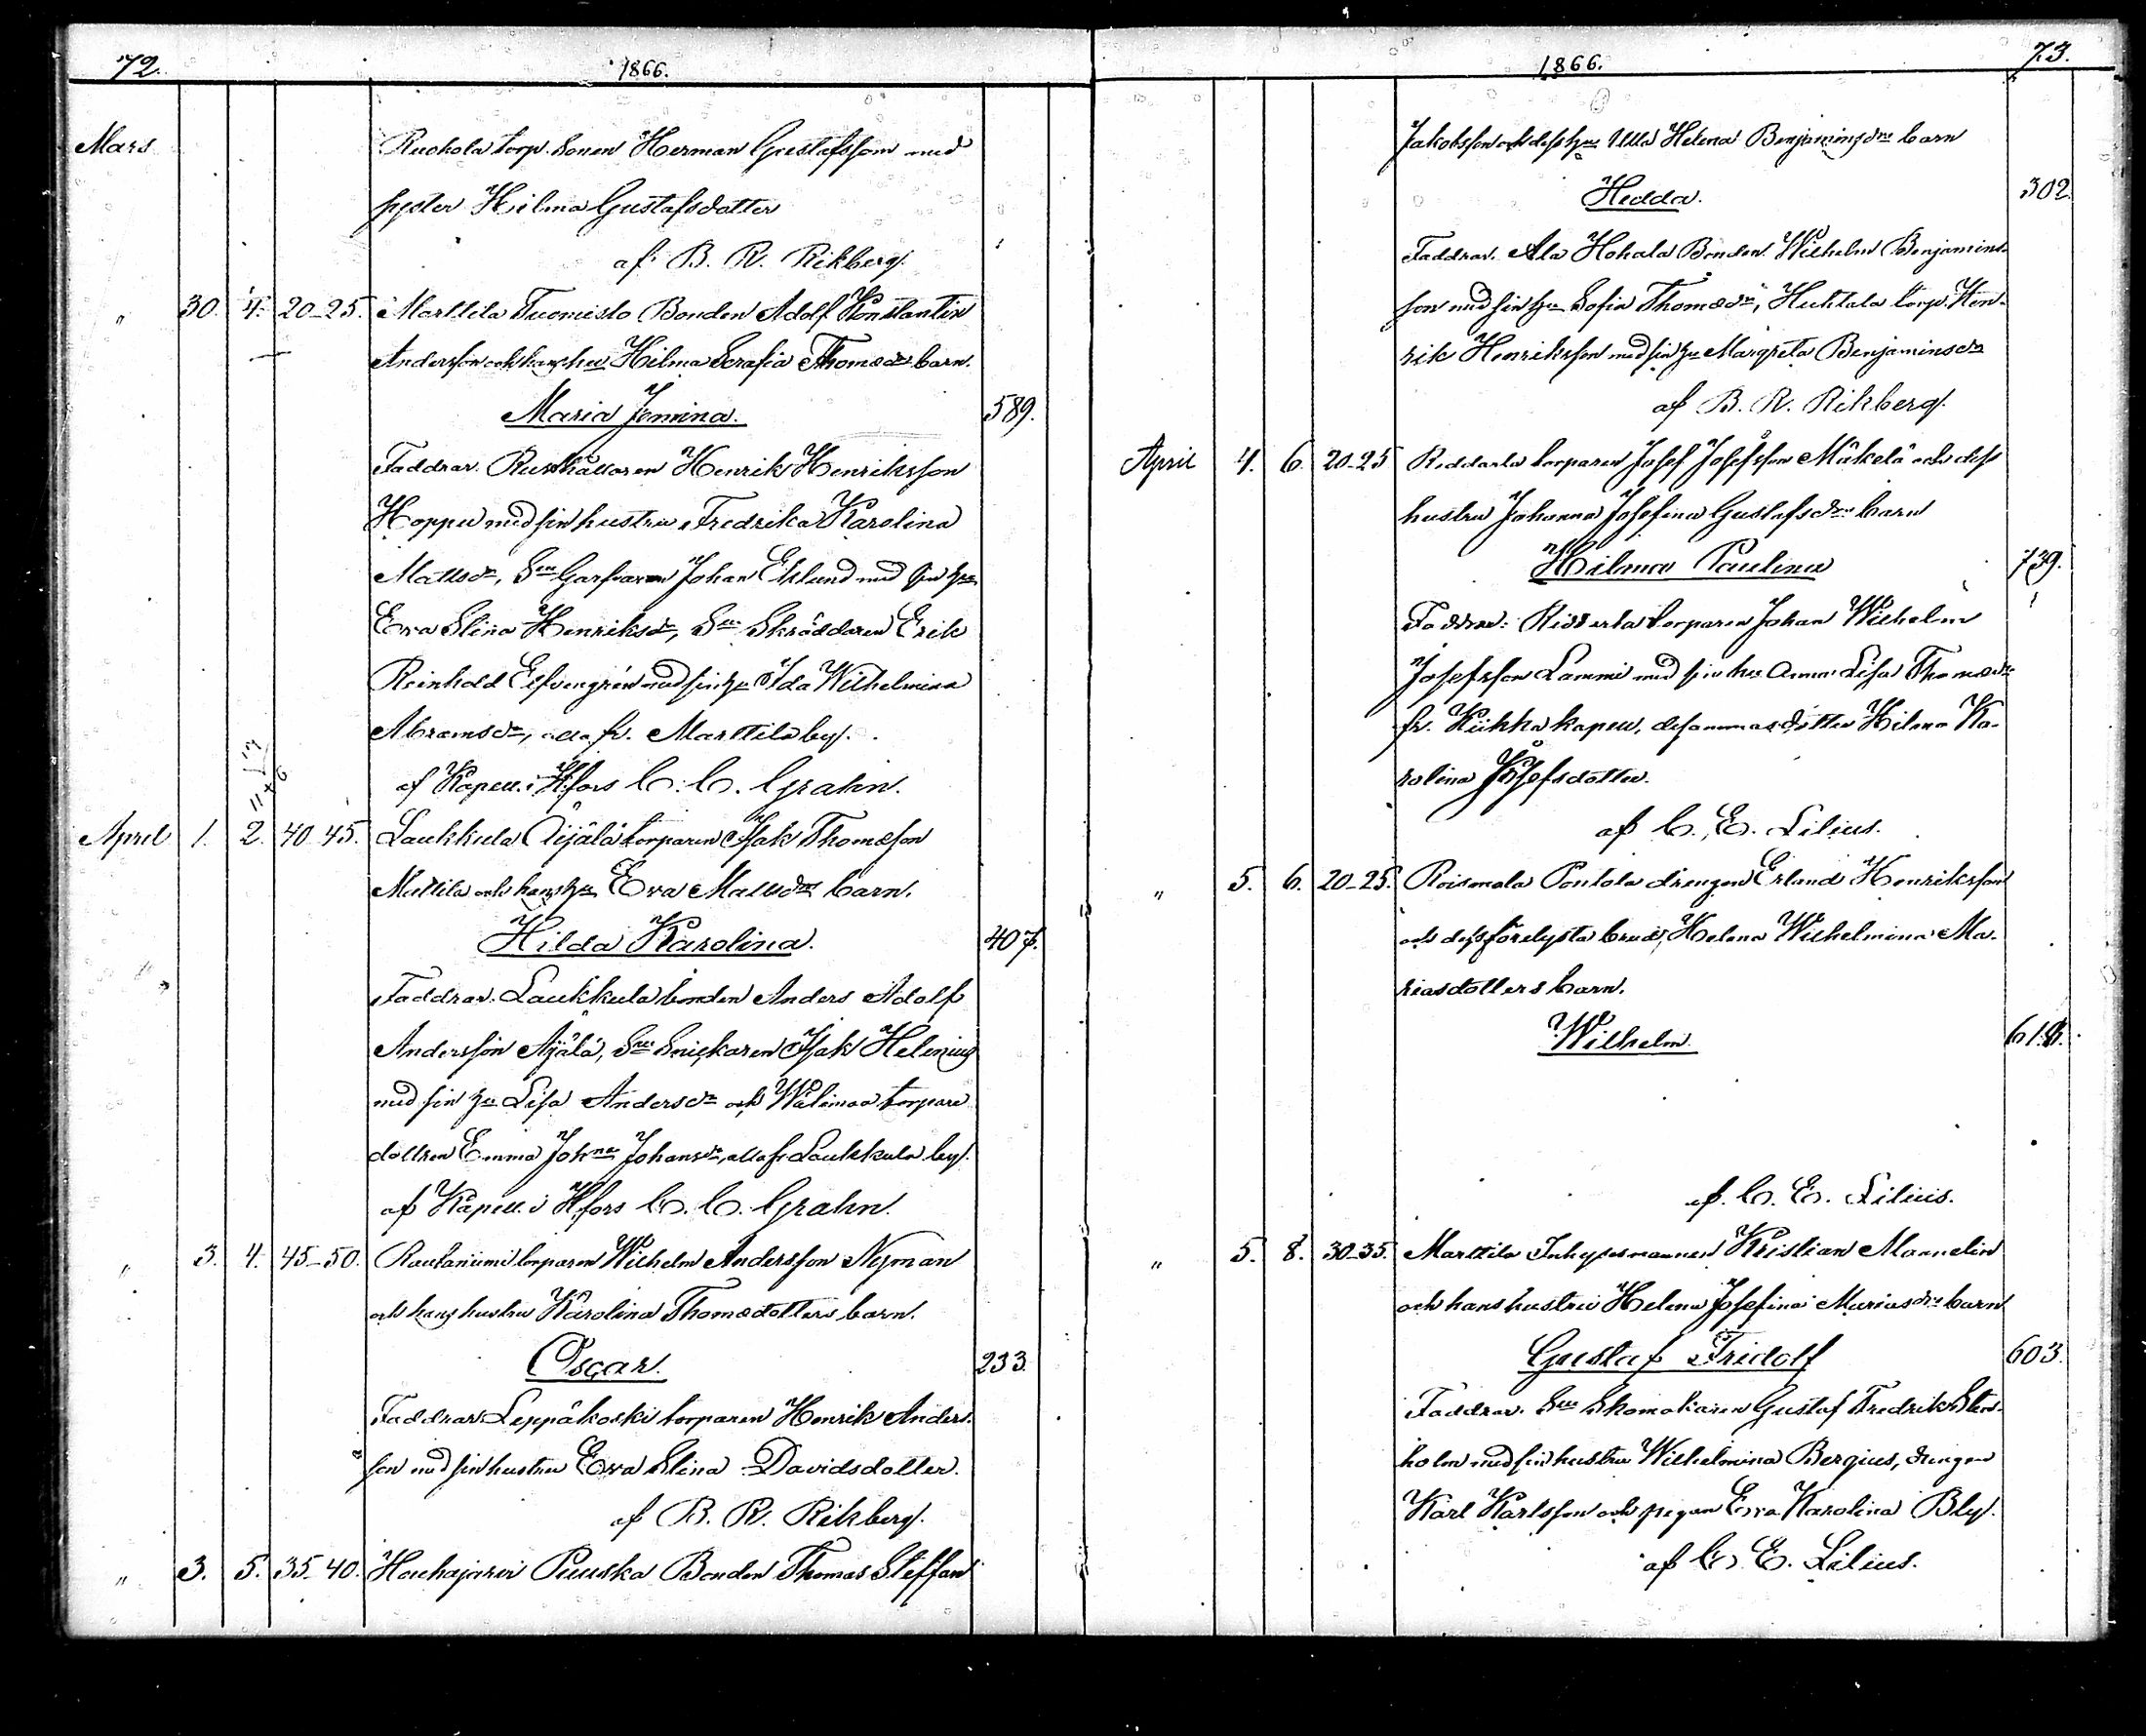 72.
1866.
Mars
Ruohola torp. sonen Herman Gustafsson med
syster Hilma Gustafsdotter
af B. R. Rikberg.
" 30. 4. 20-25. Marttila Tuomisto Bonden Adolf Konstantin
Andersson och hans hu Hilma Serafia Thomædrs barn.
Maria Jemina. 589.
Faddrar. Rusthållaren Henrik Henriksson
Hoppu med sin hustru Fredrika Karolina
Mattsdr, Garfvaren Johan Eklund med sin hu
Eva Stina Henriksdr, Skräddaren Erik
Reinhold Elfvengrén med sin hu Ida Wilhelmina
Abramsdr, alla fr. Marttila by.
af Kapell. i Hfors C. C. Grahn.
April 1. 2. 40-45. Laukkula Äijälä torparen Isak Thomæson
Mattila och hans hu Eva Mattsdrs barn.
Hilda Karolina. 407.
Faddrar. Laukkula bonden Anders Adolf
Andersson Äijälä, Snickaren Isak Helenius
med sin hu Lisa Andersdr och Wälimaa torpare
dottren Emma Johna Johansdr, alla fr Laukkula by.
af Kapell. i Hfors C. C. Grahn.
" 3. 4. 45-50. Rautaniimi torparen Wilhelm Andersson Nyman
och hans hustru Karolina Thomædotters barn.
Oscar. 233.
Faddrar. Leppäkoski torparen Henrik Anders-
son med sin hustru Eva Stina Davidsdotter.
af B. R. Rikberg.
" 3. 5. 35-40. Houhajärvi Puuska Bonden Thomas Steffan
1866.
73.
Jakobsson och dess hu Ulla Helena Benjaminsdrs barn
Hedda. 302.
Faddrar. Ala Hohala Bonden Wilhelm Benjamins-
son med sin hu Sofia Thomædr, Huhtala torp. Hen-
rik Henriksson med sin hu Margreta Benjaminsdr
af B. R. Rikberg.
April 4. 6. 20-25 Riddarla torparen Josef Josefsson Mäkelä och dess
hustru Johanna Josefina Gustafsdrs barn
Hilma Paulina 739.
Faddrar: Ridderla torparen Johan Wilhelm
Josefsson Lammi med sin hu Anna Lisa Thomædr
fr. Kiikka kapell, desammas dotter Hilma Ka-
rolina Josefsdotter.
af C. E. Lilius.
" 5. 6. 20-25. Roismala Pontola drengen Erland Henriksson
och dess förelysta brud, Helena Wilhelmina Ma-
riasdotters barn.
Wilhelm.
af C. E. Lilius.
" 5. 8. 30-35. Marttila Inhysesmannen Kristian Mannelin
och hans hustru Helena Josefina Mariasdrs barn
Gustaf Fridolf 603.
Faddrar. Skomakaren Gustaf Fredrik Sten-
holm med sin hustru Wilhelmina Bergius, drengen
Karl Karlsson och pigan Eva Karolina Bly.
af C. E. Lilius.